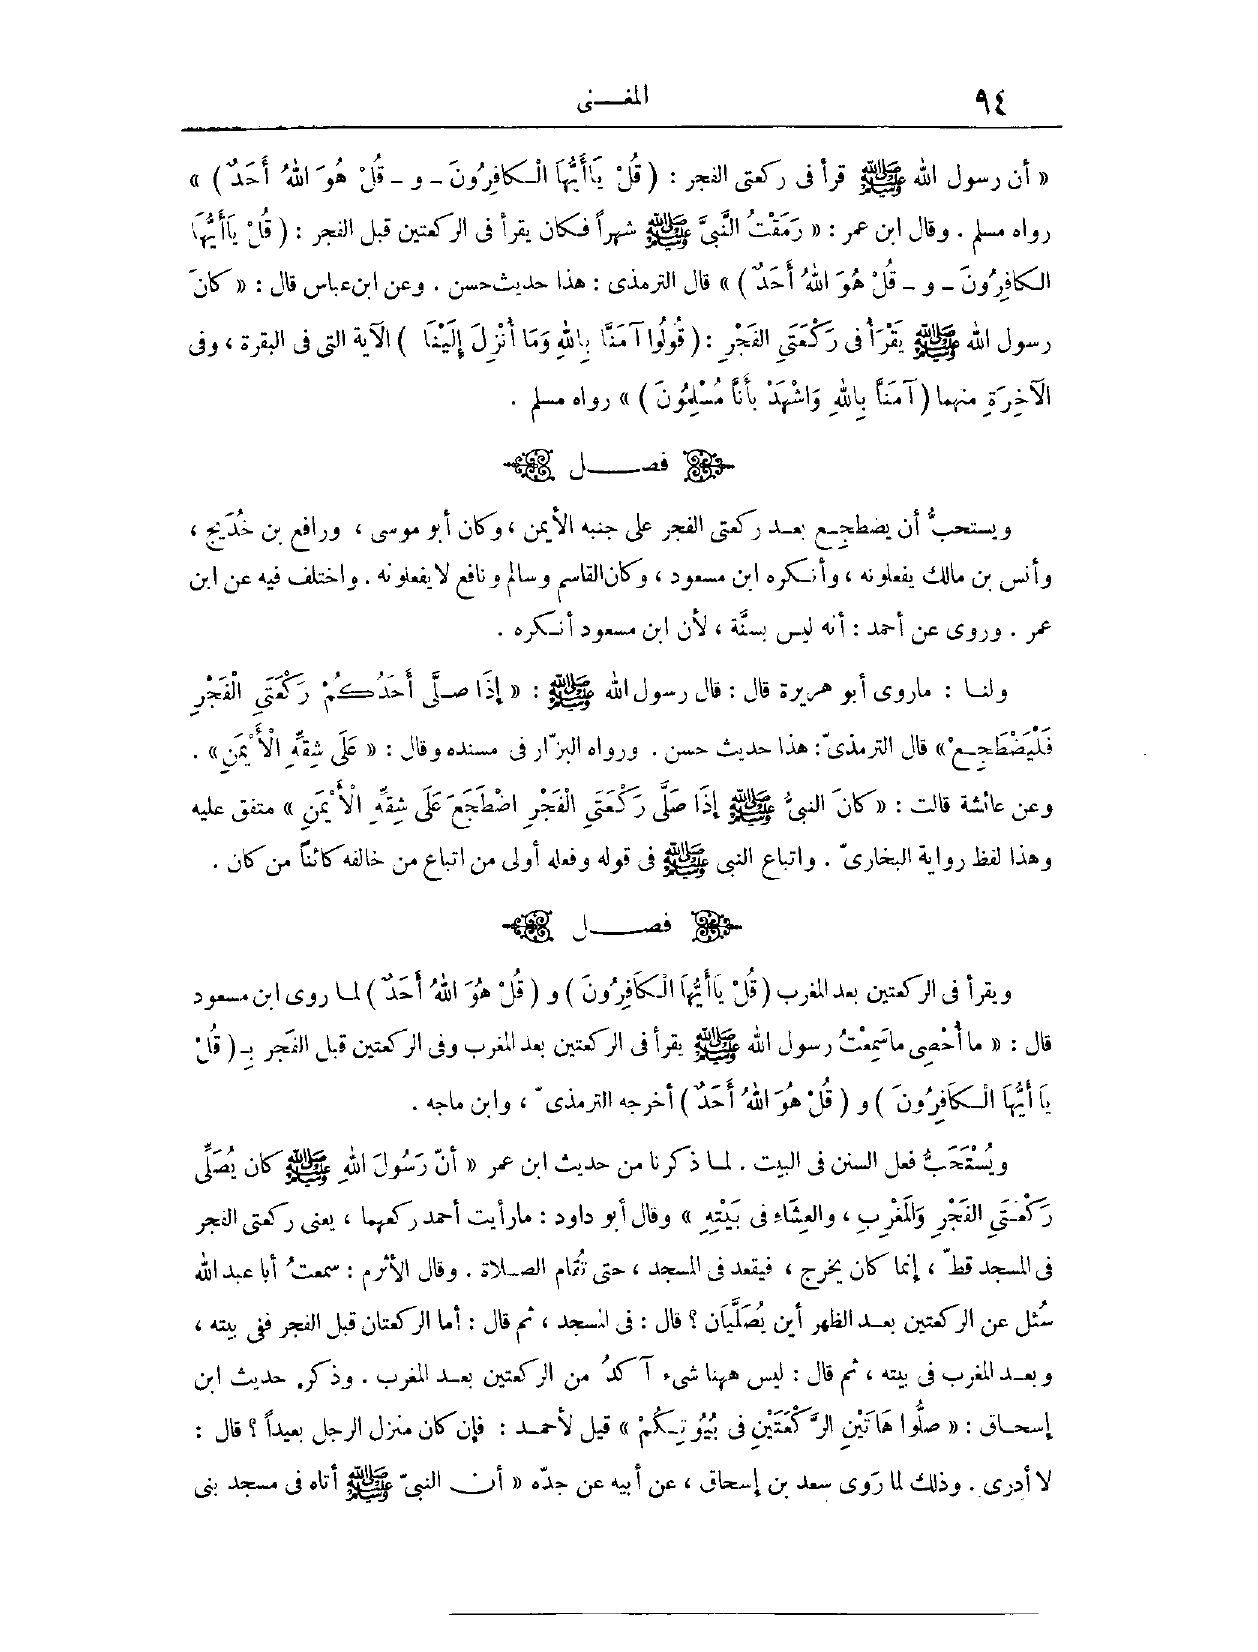 ٩٤
المغـــنى
« أن رسول الله ﷺ قرأ فى ركعتى الفجر : ( قُلْ يَاأَيُّهَا الْـكَافِرُونَ ـ و ـ قُلْ هُوَ اللهُ أَحَدٌ ) »
رواه مسلم . وقال ابن عمر : « رَمَقْتُ النَّبِىَّ ﷺ شهراً فـكان يقرأ فى الركعتين قبل الفجر : ( قُلْ يَاأَيُّهَا
الـكَافِرُونَ ـ و ـ قُلْ هُوَ اللهُ أَحَدٌ ) » قال الترمذى : هذا حديث حسن . وعن ابن عباس قال : « كَانَ
رسول الله ﷺ يَقْرَأُ فى رَكْعَتَىِ الفَجْرِ : ( قُولُوا آمَنَّا بِاللهِ وَمَا أُنْزِلَ إِلَيْنَا ) الآية التى فى البقرة ، وفى
الآخِرَةِ منهما ( آمَنَّا بِاللهِ وَاشْهَدْ بِأَنَّا مُسْلِمُونَ ) » رواه مسلم .
فصــــل
ويستحبُّ أن يضطجـع بعـد ركعتى الفجر على جنبه الأيمن ، وكان أبو موسى ، ورافع بن خُدَيج ،
وأنس بن مالك يفعلونه ، وأنـكره ابن مسعود ، وكان القاسم وسالم ونافع لا يفعلونه . واختلف فيه عن ابن
عمر . وروى عن أحمد : أنه ليس بسنَّة ، لأن ابن مسعود أنـكره .
ولنـا : ماروى أبو هريرة قال : قال رسول الله ﷺ : « إِذَا صـلَّى أَحَدُكُمْ رَكْعَتَىِ الْفَجْرِ
فَلْيَضْطَجِـعْ » قال الترمذىّ : هذا حديث حسن . ورواه البزّار فى مسنده وقال : « عَلَى شِقِّهِ الْأَيْمَنِ » .
وعن عائشة قالت : « كَانَ النبىُّ ﷺ إِذَا صَلَّى رَكْعَتَىِ الْفَجْرِ اضْطَجَعَ عَلَى شِقِّهِ الْأَيْمَنِ » متفق عليه
وهذا لفظ رواية البخارىّ . واتباع النبى ﷺ فى قوله وفعله أولى من اتباع من خالفه كائناً من كان .
فصــــل
ويقرأ فى الركعتين بعد المغرب ( قُلْ يَاأَيُّهَا الْـكَافِرُونَ ) و ( قُلْ هُوَ اللهُ أَحَدٌ ) لمـا روى ابن مسعود
قال : « ما أُحْصِى ماسَمِعْتُ رسول الله ﷺ يقرأ فى الركعتين بعد المغرب وفى الركعتين قبل الفَجر بِـ ( قُلْ
يَا أَيُّهَا الْـكَافِرُونَ ) و ( قُلْ هُوَ اللهُ أَحَدٌ ) أخرجه الترمذىّ ، وابن ماجه .
ويُسْتَحَبُّ فعل السنن فى البيت . لمـا ذكرنا من حديث ابن عمر « أنّ رَسُولَ اللهِ ﷺ كان يُصَلِّى
رَكْعَتَىِ الفَجْرِ وَالمَغْرِبِ ، والعِشَاء فى بَيْتِهِ » وقال أبو داود : مارأيت أحمد ركعهما ، يعنى ركعتى الفجر
فى المسجد قطّ ، إنما كان يخرج ، فيقعد فى المسجد ، حتى تُقام الصـلاة . وقال الأثرم : سمعتُ أبا عبد الله
سُئل عن الركعتين بعـد الظهر أين يُصَلَّيَان ؟ قال : فى المسجد ، ثم قال : أما الركعتان قبل الفجر ففى بيته ،
وبعـد المغرب فى بيته ، ثم قال : ليس ههنا شىء آكدُ من الركعتين بعـد المغرب . وذكر حديث ابن
إسحـاق : « صلُّوا هَاتَيْنِ الرَّكْعَتَيْنِ فى بُيُوتِـكُمْ » قيل لأحمـد : فإن كان منزل الرجل بعيداً ؟ قال :
لا أدرى . وذلك لما رَوى سعد بن إسحاق ، عن أبيه عن جدّه « أن النبىّ ﷺ أتاه فى مسجد بنى